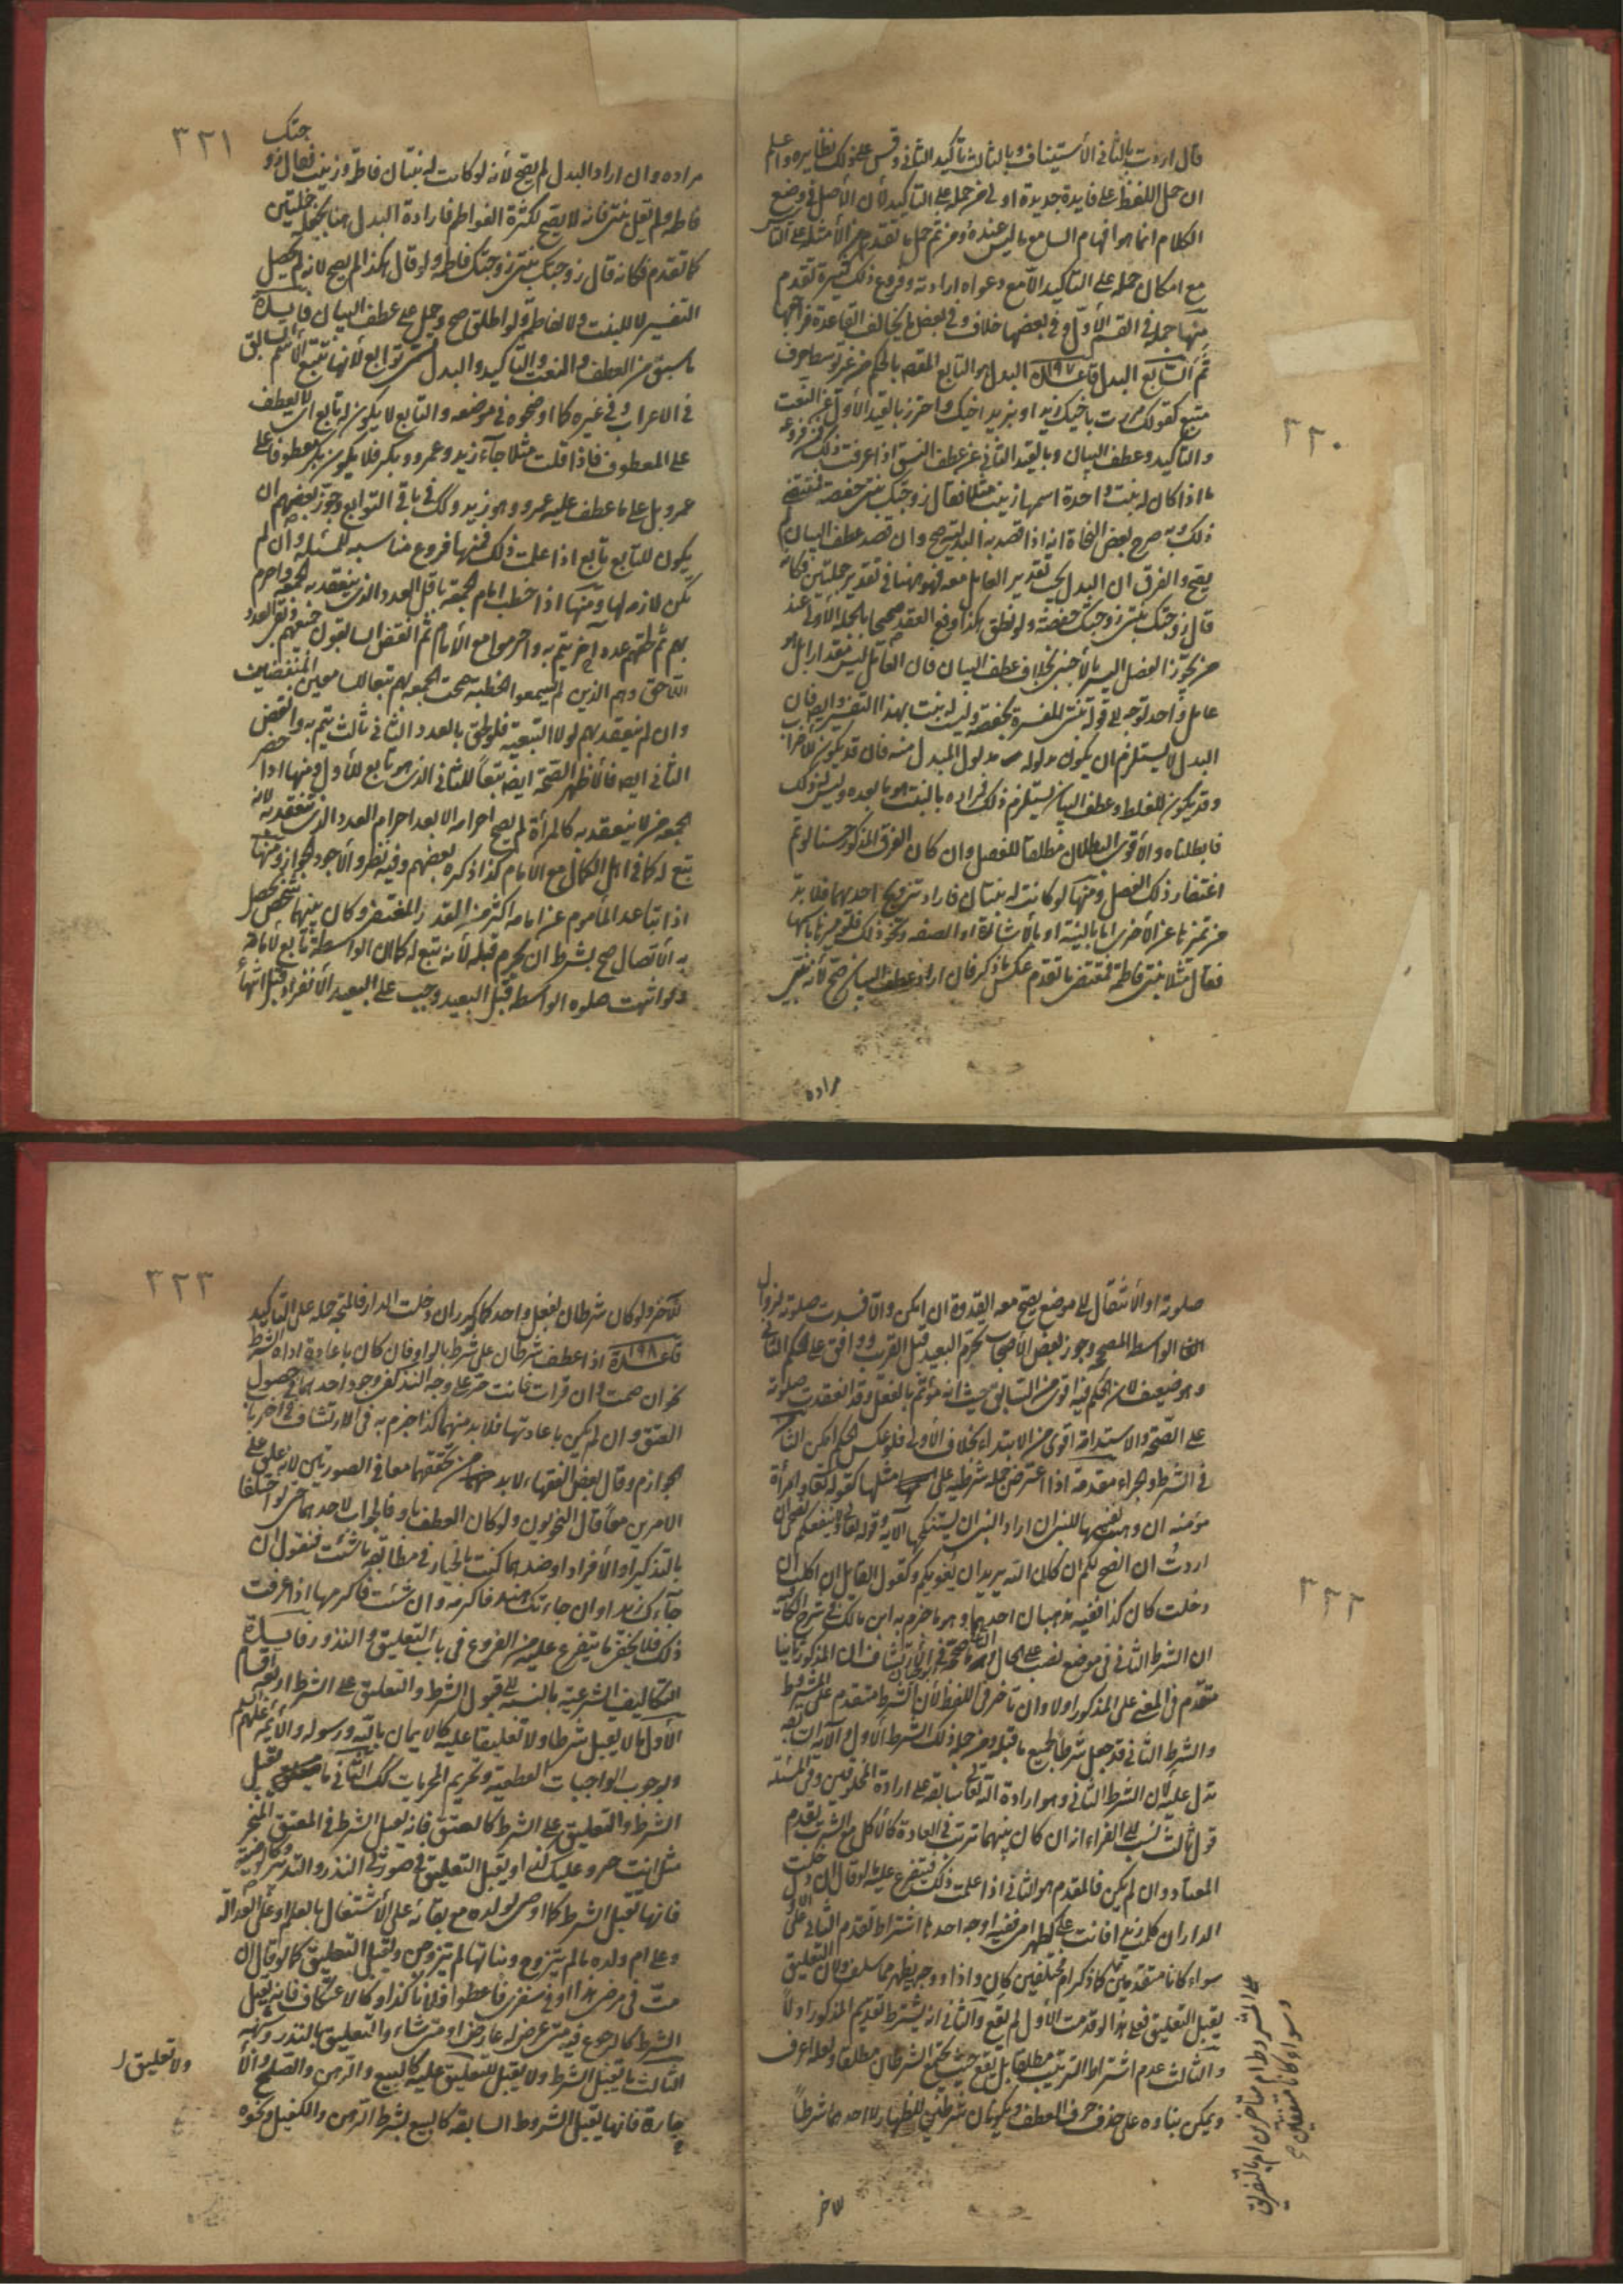 ٣٢٠
قال اردت بالثاني الاستيناف وبالثالث تأكيد الثاني وقس على ذلك نظايره واعلم
ان حمل اللفظ على فايدة جديدة اولى من حمله على التأكيد لأن الأصل في وضع
الكلام انما هو افهام السامع ما ليس عنده ومن ثم حمل ما تقدم من الأمثلة على التأسيس
مع امكان حمله على التأكيد الا مع دعواه ارادته وفروع ذلك كثيرة تقدم
منها جملة في القسم الأول وفي بعضها خلاف وفي بعض ما يخالف القاعدة فراجعها
ثم الرابع البدل قاعدة ١٩٧ البدل هو التابع المقصود بالحكم من غير توسط حرف
متبع كقولك مررت باخيك زيد او بزيد اخيك واحترز بالقيد الأول عن النعت
والتأكيد وعطف البيان وبالقيد الثاني عن عطف النسق اذا عرفت ذلك فمن فروعه
ما اذا كان له بنت واحدة اسمها زينب مثلا فقال زوجتك بنتي حفصة فمقتضى
ذلك وبه صرح بعض النحاة انه اذا قصد به البدل صح وان قصد عطف البيان لم
يصح والفرق ان البدل على تقدير العامل معه فهو هنا في تقدير جملتين فكأنه
قال زوجتك بنتي زوجتك حفصة ولو نطق بهكذا وقع العقد صحيحا بالجملة الأولى عند
من يجوز الفصل اليسير بالأجنبي بخلاف عطف البيان فان العامل ليس مقدرا بل هو
عامل واحد توجه الى قوله بنتي المفسرة بحفصة وليس له بنت بهذا التفسير وايضا فان
البدل لا يستلزم ان يكون مدلوله مدلول المبدل منه فانه قد يكون للاضراب
وقد يكون للغلط وعطف البيان يستلزم ذلك فمراده بالبنت هو ما بعده وليس كذلك
فابطلناه والأقوى البطلان مطلقا للفصل وان كان الفرق المذكور حسنا لو تم
اغتفار ذلك الفصل ومنها لو كانت له بنتان فاراد تزويج احديهما فلا بد
من تميزها عن الأخرى اما بالنية او بالاشارة او الصفة ونحو ذلك فلو ميزها باسمها
فقال مثلا بنتي فاطمة فمقتضى ما تقدم عكس ما ذكر فان اراد عطف البيان صح لأنه بنتي
مراده
٣٢١
مراده وان اراد البدل لم يصح لأنه لو كانت له بنتان فاطمة وزينب فقال زوجتك
فاطمة ولم يقل بنتي فانه لا يصح لكثرة الفواطم فارادة البدل هنا تجعله جملتين
كما تقدم فكانه قال زوجتك بنتي زوجتك فاطمة ولو قال هكذا لم يصح لانه لم يحصل
التفسير لا للبنت ولا لفاطمة ولو اطلق صح وحمل على عطف البيان فايدة
ما سبق من العطف والنعت والتأكيد والبدل تسمى توابع لأنها تتبع الاسم السابق
في الاعراب وفي غيره كما اوضحوه في موضعه والتابع لا يكون له تابع اي لا يعطف
على المعطوف فاذا قلت مثلا جآء زيد وعمرو وبكر فلا يكون بكر معطوفا على
عمرو بل على ما عطف عليه عمرو وهو زيد وكك في باقي التوابع وجوز بعضهم ان
يكون للتابع تابع اذا علمت ذلك فمنها فروع مناسبة للمسئلة وان لم
يكن لازمة لها ومنها اذا خطب امام الجمعة باقل العدد الذي ينعقد به الجمعة واحرم
بهم ثم لحقهم عدد آخر يتم به واحرموا مع الامام ثم انفض السابقون جميعهم وبقي العدد
اللاحق وهم الذين لم يسمعوا الخطبة صحت الجمعة لهم تبعا للسامعين المنفضين
وان لم ينعقد بهم لولا التبعية فلو لحق بالعدد الثاني ثالث يتم به وانفض
الثاني ايضا فالأظهر الصحة ايضا تبعا للثاني الذي هو تابع للأول ومنها اذا حضر
الجمعة من لا ينعقد به كالمرأة لم يصح احرامه الا بعد احرام العدد الذي تنعقد به لأنه
تبع له كما في اهل الكمال مع الامام كذا ذكره بعضهم وفيه نظر والأجود الجواز ومنها
اذا تباعد المأموم عن امامه اكثر من القدر المغتفر وكان بينهما شخص يحصل
به الاتصال صح بشرط ان يحرم قبله لأنه تبع له كما ان الواسطة تابع لامامه
ولو انتهت صلوة الواسطة قبل البعيد وجب على البعيد الانفراد قبل انتهاء
٣٢٢
صلوته او الانتقال الى موضع يصح معه القدوة ان امكن والا فسدت صلوته لزوال
الواسطة المصححة وجوز بعض الأصحاب تحرم البعيد قبل القريب ووافق على الحكم الثاني
وهو ضعيف لأن الحكم فيه اقوى من السابق حيث انه مؤتم بالفعل وقد انعقدت صلوته
على الصحة والاستدامة اقوى من الابتداء بخلاف الأولى فلو عكس الحكم امكن الثامن
في الشرط والجزاء مقدمة اذا اعترض جملة شرطية على مثلها كقوله تعالى وامرأة
مؤمنة ان وهبت نفسها للنبي ان اراد النبي ان يستنكحها الآية وقوله تعالى ولا ينفعكم نصحي ان
اردت ان انصح لكم ان كان الله يريد ان يغويكم وكقول القائل ان اكلت ان
دخلت كان كذا ففيه مذهبان احدهما وهو ما جزم به ابن مالك في شرح الكافية
ان الشرط الثاني في موضع نصب على الحال والثاني وصححه ابو حيان في الارتشاف ان المذكور ثانيا
متقدم في المعنى على المذكور اولا وان تأخر في اللفظ لأن الشرط متقدم على المشروط
والشرط الثاني قد جعل شرطا لجميع ما قبله ومن جملة ذلك الشرط الأول والآية السابقة
تدل عليه لأن الشرط الثاني وهو ارادة الله تعالى سابقة على ارادة المخلوقين وفي المسئلة
قول ثالث نسب الى الفراء انه ان كان بينهما ترتب في العادة كالأكل مع الشرب تقدم
المعتاد وان لم يكن فالمقدم هو الثاني اذا علمت ذلك فيتفرع عليه ما لو قال ان دخلت
الدار ان كلمت زيدا فانت علي كظهر امي ففيه اوجه احدها اشتراط تقدم الثاني على الأول
سواء كانا متقدمين كما ذكر ام مختلفين كان واذا ووجه يظهر مما سلف ولأن التعليق
يقبل التعليق فعلى هذا لو قدمت الأول لم يقع والثاني انه يشترط تقديم المذكور اولا
والثالث عدم اشتراط الترتيب مطلقا بل يقع حيث يجتمع الشرطان مطلقا ولعله اعرف
ويمكن بناؤه على حذف حرف العطف ويكونان شرطين للظهار لا احدهما شرطا
على المشروط ام متأخرين ام بالتفريق
وسواء كانا متفقين
للآخر
٣٢٣
للآخر ولو كان شرطان لفعل واحد كما كرر ان دخلت الدار فالمتجه حمله على التأكيد
قاعدة ١٩٨ اذا عطف شرطان على شرط بالواو فان كان باعادة اداة الشرط
نحو ان صمت وان قرأت فانت حر على وجه النذر كفى وجود احدهما في حصول
العتق وان لم يكن باعادتها فلا بد منهما كذا جزم به في الارتشاف في آخر باب
الجوازم وقال بعض الفقهاء لا بد من تحققهما معا في الصورتين لانه علق على
الامرين معا قال النحويون ولو كان العطف باو فالجواب لاحدهما حتى لو اختلفا
بالتذكير او الأفراد او ضدهما كنت بالخيار في مطابقة ما شئت فتقول ان
جآءك زيد او ان جاءتك هند فاكرمه وان شئت فاكرمها اذا عرفت
ذلك فلا يخفى ما يتفرع عليه من الفروع في باب التعليق والنذور فايدة
للتكاليف الشرعية بالنسبة الى قبول الشرط والتعليق على الشرط اربعة اقسام
الأول ما لا يقبل شرطا ولا تعليقا عليه كالايمان بالله ورسوله والأئمة عليهم السلم
وبوجوب الواجبات القطعية وتحريم المحرمات كك الثاني ما يقبل
الشرط والتعليق على الشرط كالعتق فانه يقبل الشرط في المعتق المنجز
مثل انت حر وعليك كذا ويقبل التعليق في صورتي النذر والتدبير وكالوصية
فانها تقبل الشرط كما اوصى لولده مع بقائه على الاشتغال بالعلم او على العدالة
وعلى ام ولده ما لم يتزوج وبناتها لم يتزوجن ويقبل التعليق كما لو قال ان
مت في مرضي هذا او في سفري فاعطوا فلانا كذا وكالاعتكاف فانه يقبل
الشرط كالرجوع فيه متى عرض له عارض او متى شاء والتعليق بالنذر وشبهه
الثالث ما يقبل الشرط ولا يقبل التعليق عليه كالبيع والرهن والصلح والا
جارة فانها يقبل الشروط السابقة كالبيع بشرط الرهن والكفيل ونحوه
ولا تعليق